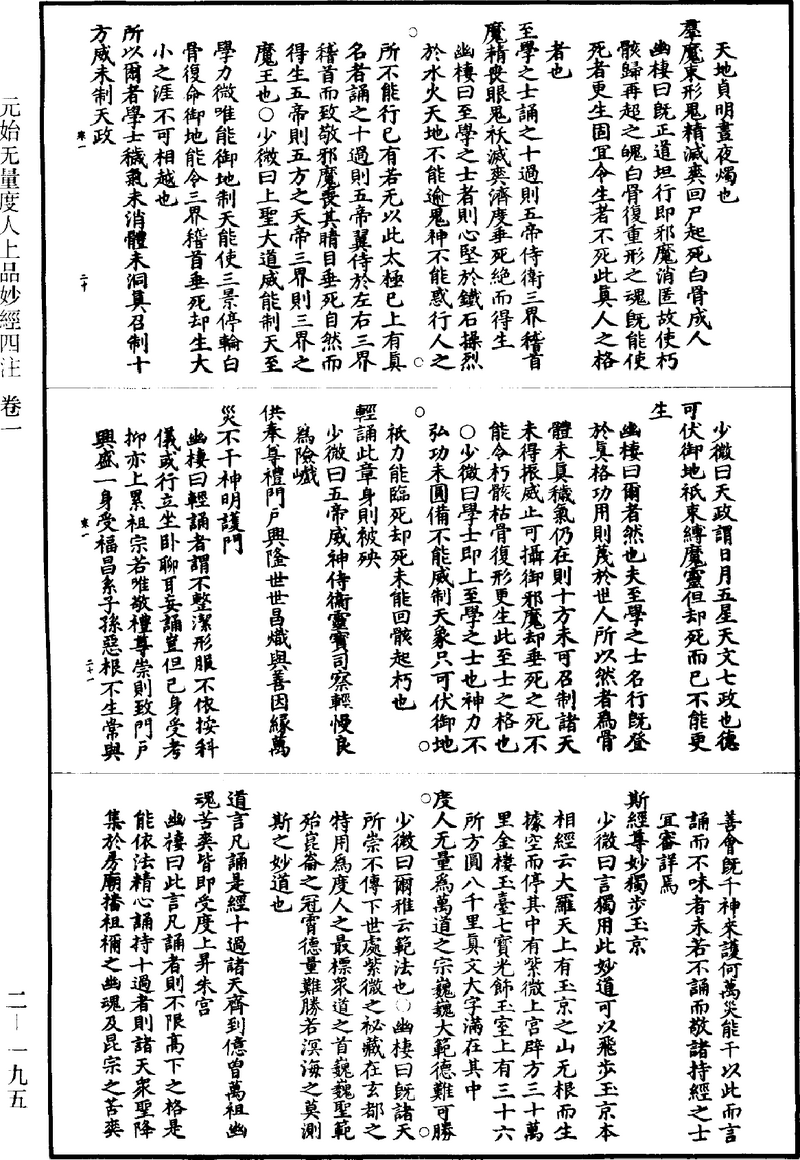 天地貞明晝夜燭也
羣魔束形鬼精滅爽回尸起死白骨成人
幽棲曰既正道坦行即邪魔消匿故使朽
骸歸再起之魄白骨復重形之魂既能使
死者更生固宜令生者不死此真人之格
者也
至學之士誦之十過則五帝侍衛三界稽首
魔精喪眼鬼祅滅爽濟度垂死絕而得生
幽棲曰至學之士者則心堅於鐵石操烈
於水火天地不能逾鬼神不能惑行人之
所不能行已有若无以此太極已上有真
名者誦之十過則五帝翼侍於左右三界
稽首而致敬邪魔喪其睛目垂死自然而
得生五帝則五方之天帝三界則三界之
魔王也○少微曰上聖大道威能制天至
學力微唯能御地制天能使三景停輪白
骨復命御地能令三界稽首垂死却生大
小之涯不可相越也
所以爾者學士穢氣未消體未洞真召制十
方威未制天政
寒一
二十
少微曰天政謂日月五星天文七政也德
可伏御地祇束縛魔靈但却死而已不能更
生
幽棲曰爾者然也夫至學之士名行既登
於真格功用則茂於世人所以然者為骨
體未真穢氣仍在則十方未可召制諸天
未得振威止可攝御邪魔却垂死之死不
能令朽骸枯骨復形更生此至士之格也
○少微曰學士即上至學之士也神力不
弘功未圓備不能威制天象只可伏御地
祇力能臨死却死未能回骸起朽也
輕誦此章身則被殃
少微曰五帝威神侍衛靈寶司察輕慢良
為險巇
供奉尊禮門戶興隆世世昌熾與善因緣萬
災不干神明護門
幽棲曰輕誦者謂不整潔形服不依按科
儀或行立坐卧聊耳妄誦豈但已身受考
抑亦上累祖宗若唯敬禮尊崇則致門戶
興盛一身受福昌系子孫惡根不生常與
寒一
二十一
善會既千神來護何萬災能干以此而言
誦而不味者未若不誦而敬諸持經之士
宜審詳焉
斯經尊妙獨步玉京
少微曰言獨用此妙道可以飛步玉京本
相經云大羅天上有玉京之山无根而生
據空而停其中有紫微上宮辟方三十萬
里金樓玉臺七寶光飾玉室上有三十六
所方圓八千里真文大字滿在其中
度人无量為萬道之宗巍巍大範德難可勝
少微曰爾雅云範法也○幽棲曰既諸天
所崇不傳下世處紫微之祕藏在玄都之
特用為度人之最標衆道之首巍巍聖範
殆崑崙之冠霄德量難勝若溟海之莫測
斯之妙道也
道言凡誦是經十過諸天齊到億曾萬祖幽
魂苦爽皆即受度上昇朱宮
幽棲曰此言凡誦者則不限高下之格是
能依法精心誦持十過者則諸天衆聖降
集於房廟擔祖禰之幽魂及昆宗之苦爽
元始无量度人上品妙經四注 卷一
二—一九五